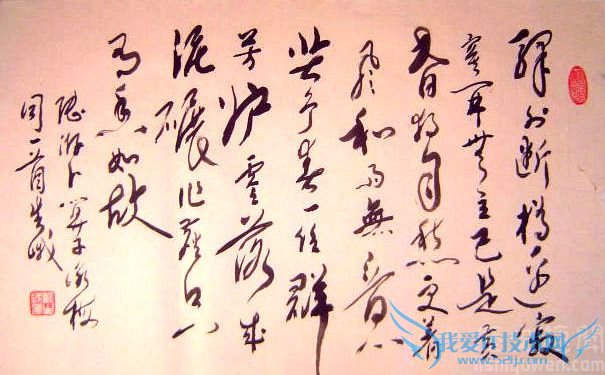 驛外斷橋邊寂
寞開無主已是黃
昏獨自愁更着
風和雨無意
苦爭春一任群
芳妒零落成
泥碾作塵只
有香如故
陸游卜算子詠梅
詞一首
我爱IT技术网